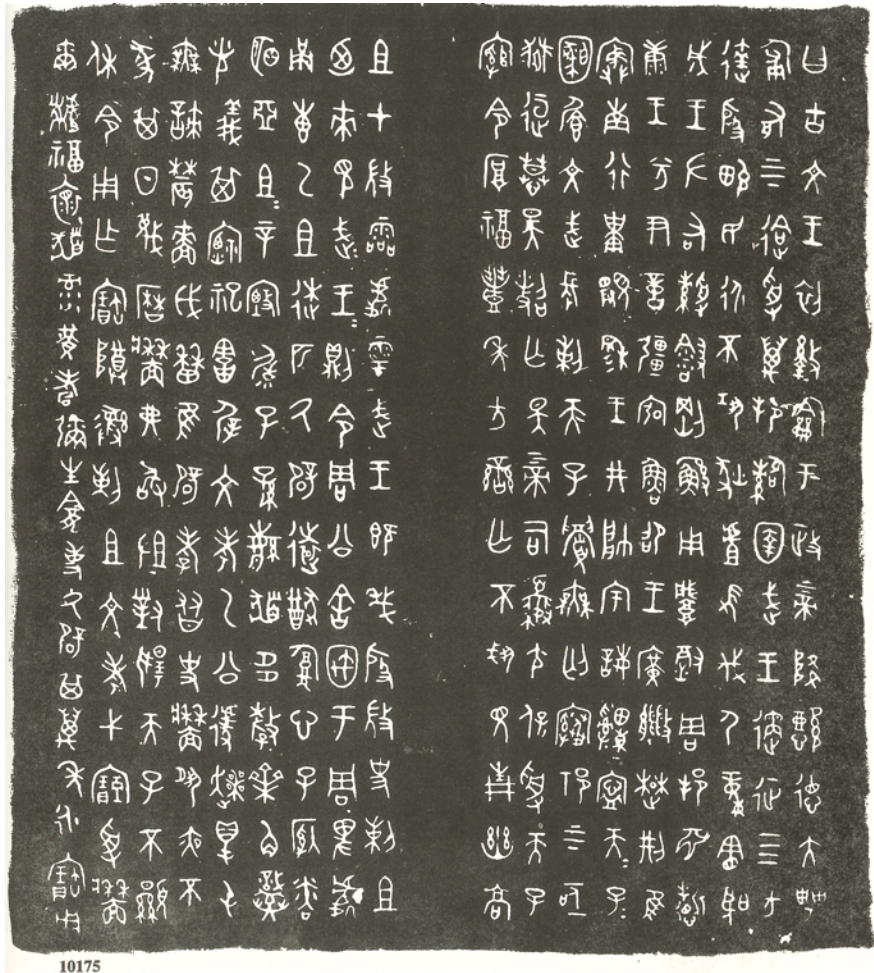 曰古文王初盭龢于政上帝降懿德大甹
匍有上下迨受萬邦䚄圉武王遹征四方
達殷畯民永不巩狄虘髟伐尸童憲聖
成王左右綬䋣剛鯀用肇徹周邦淵哲
康王兮尹億彊宖魯卲王廣楚荊隹
寏南行祗覭穆王井帥宇誨申寧天子=
文武長剌天子眉無匄上下
亟獄桓慕昊照亡斁上帝司夒尢保受天子
綰令厚福豐年方蠻亡不踝見青幽高
且才微霝處雩武王既殺殷微史剌且
廼來見武=王=則令周公舍㝢于周卑處
甬叀乙且逨匹氒辟遠猷腹心子厥粦
明亞且=辛毓子孫繁多孷齊角熾光
義其禋祀害屖文考乙公遽爽得屯
無諫農嗇戉歷隹辟孝友史牆夙夜不
墜其日蔑曆牆弗敢沮對揚天子不顯
休令用乍寶尊彝剌且文考弋受牆
爾福懷彔黃耇彌生龕事氒辟其萬年永寶用